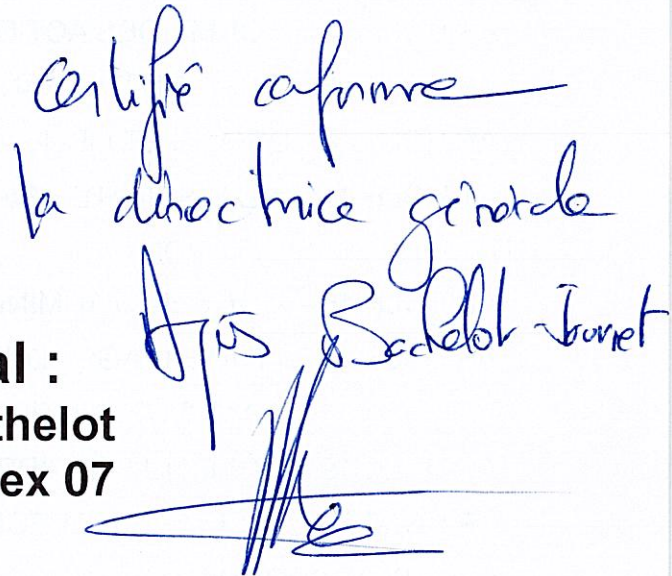 Certifié conforme
la directrice générale
Agnès Bachelot-Journet
al :
thelot
ex 07